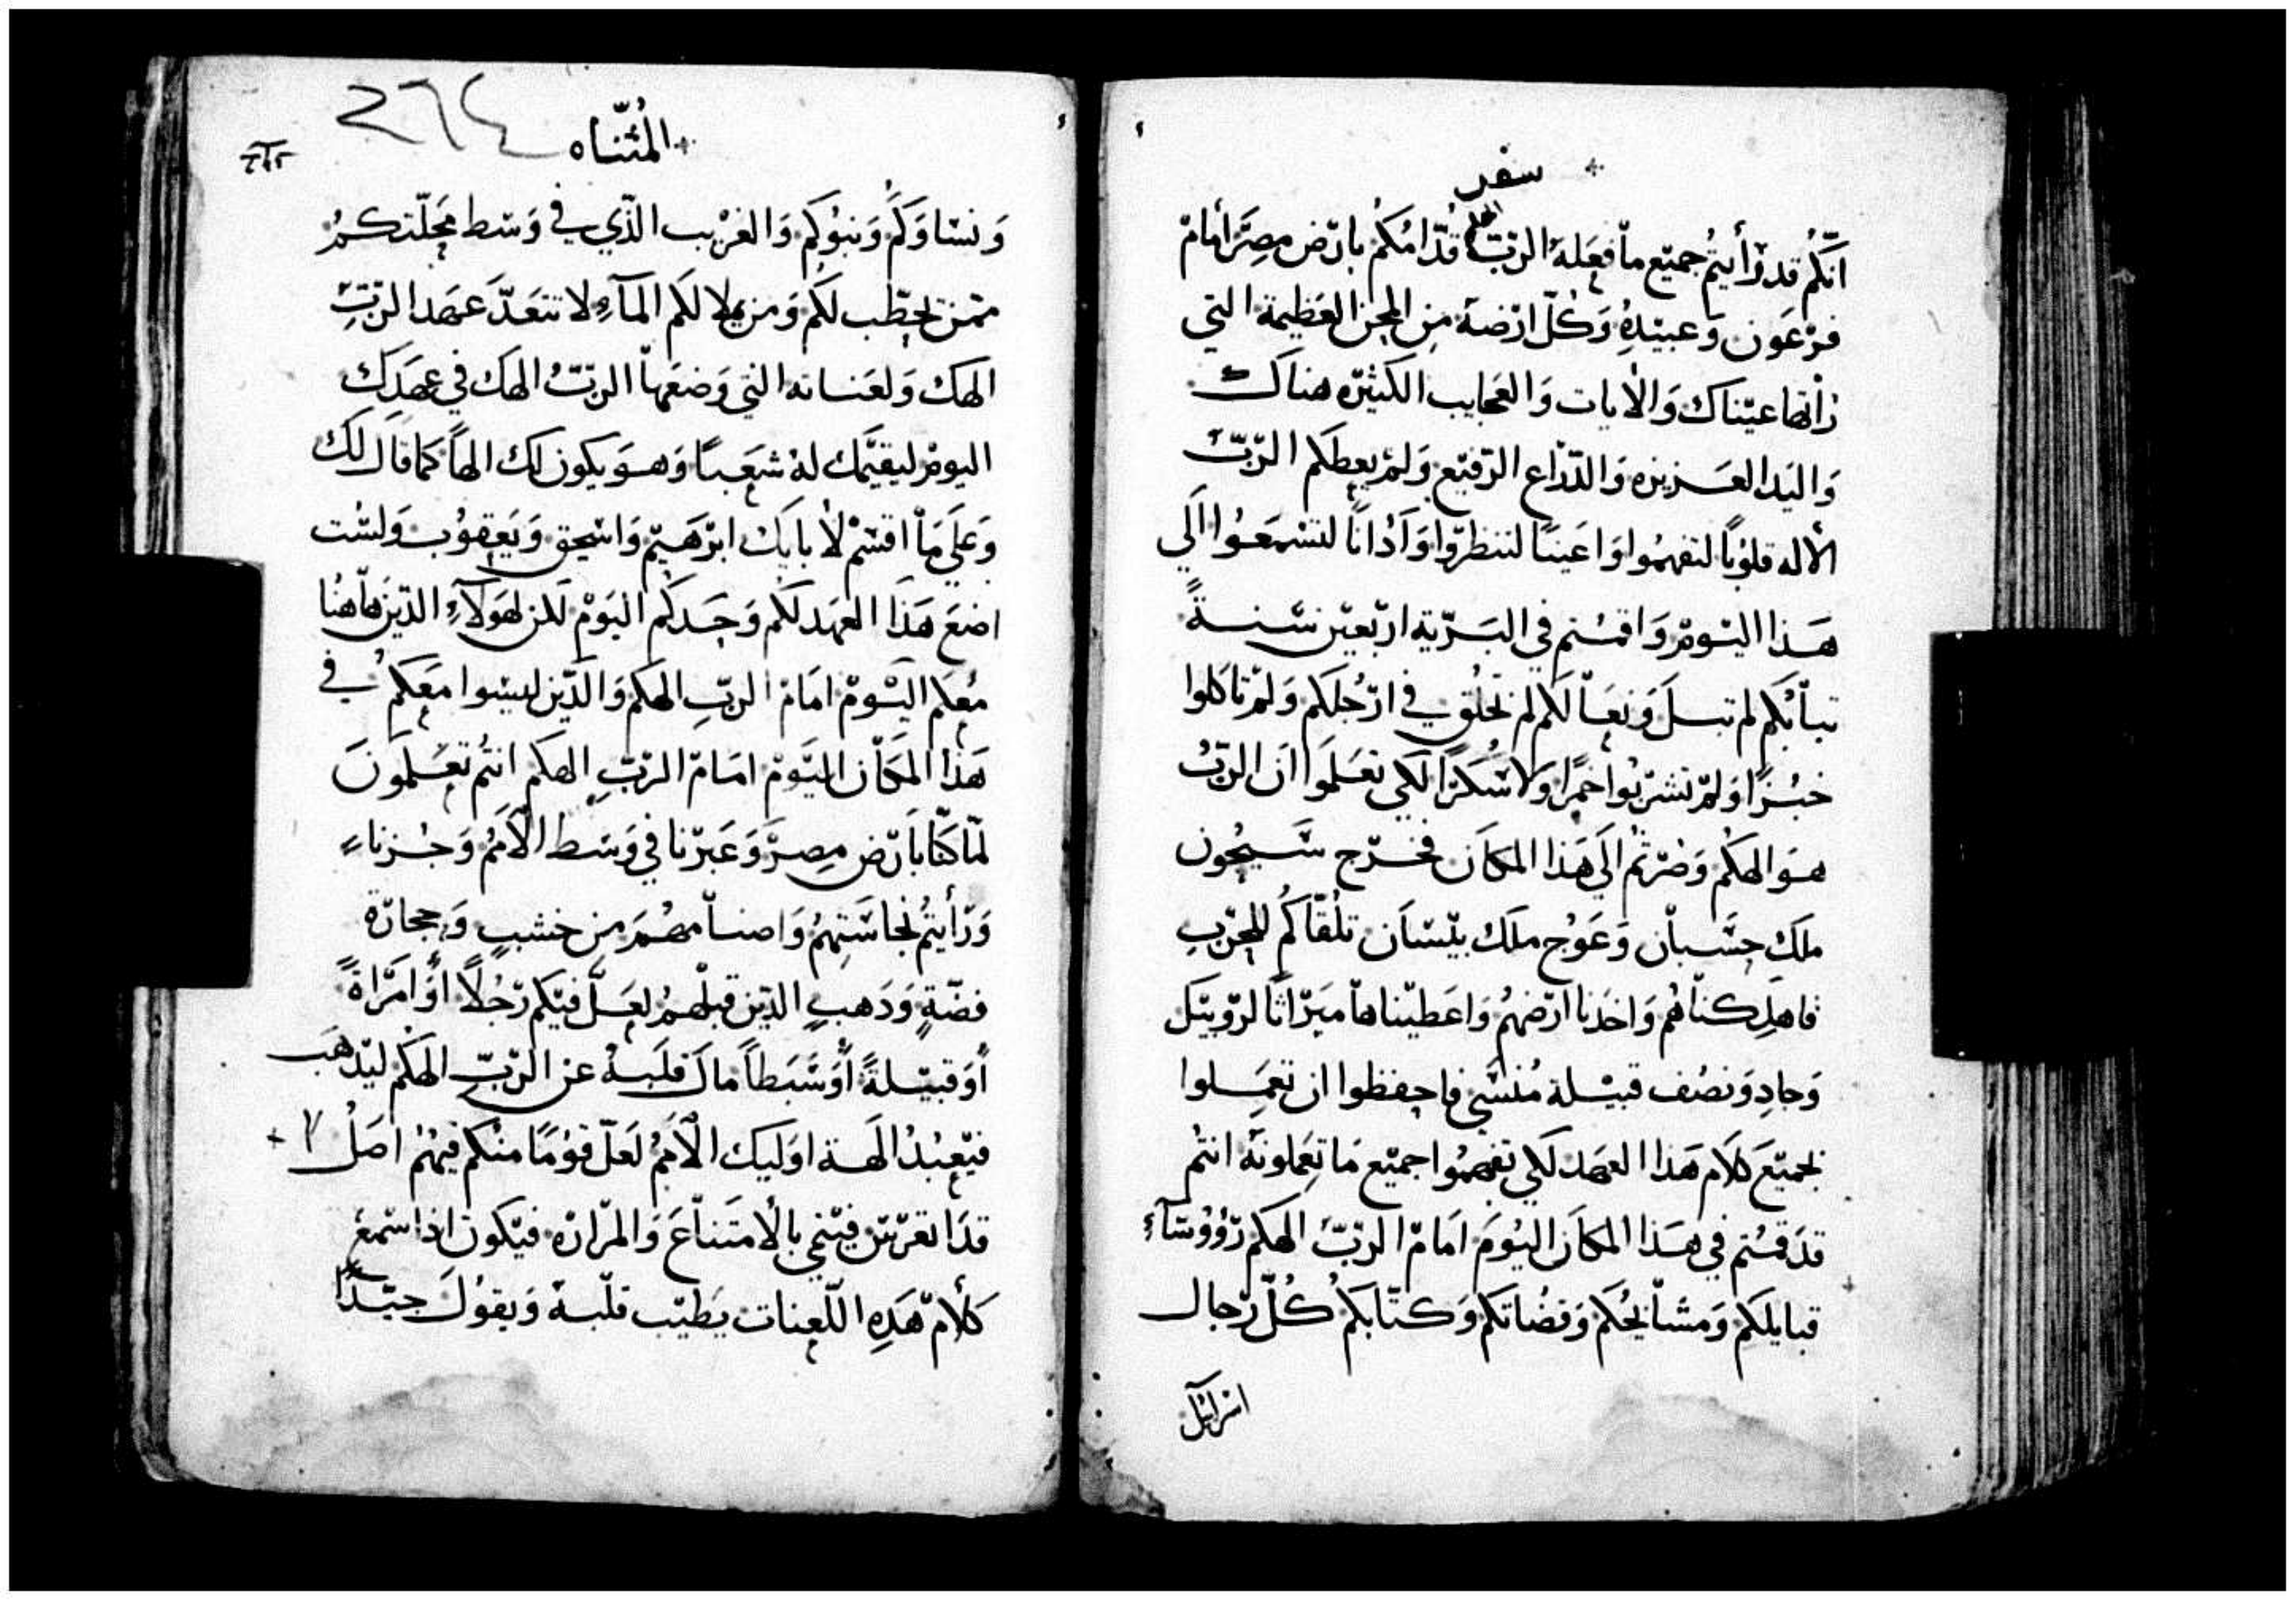 سفر
انكم قد رأيتم جميع ما فعله الرب الهكم قدامكم بارض مصر أمام
فرعون وعبيده وكل ارضه من المحن العظيمة التي
رأتها عيناك والايات والعجايب الكثيره هناك
واليد العزيزه والدراع الرفيع ولم يعطكم الرب
الاله قلوبًا لتفهموا واعينًا لتنظروا وآدانًا لتسمعوا الي
هذا اليوم واقمتم في البرية اربعين سنةً
تيابكم لم تبل ونعالكم لم تخلق في ارجلكم ولم تاكلوا
خبزًا ولم تشربوا خمرًا ولا سكرًا لكي تعلموا ان الرب
هو الهكم وصرتم الي هذا المكان فخرج سيحون
ملك حسبان وعوج ملك بيسان تلقاكم للحرب
فاهلكناهم واخدنا ارضهم واعطيناها ميراثا لروبيل
وجاد ونصف قبيلة منسي فاحفظوا ان تعملوا
بجميع كلام هذا العهد لكي تفهموا جميع ما تعملونه انتم
قد قمتم في هذا المكان اليوم امام الرب الهكم رؤوساء
قبايلكم ومشايخكم وقضاتكم وكتابكم كل رجال
اسرائيل
المثناه
٢٦٤
ونساوكم وبنوكم والغريب الذي في وسط محلتكم
ممن يحطب لكم ومن يملا لكم الماء لا تتعد عهد الرب
الهك ولعناته التي وضعها الرب الهك في عهدك
اليوم ليقيمك له شعبًا وهو يكون لك الهًا كما قال لك
وعلي ما اقسم لابايك ابرهيم واسحق ويعقوب ولست
اضع هذا العهد لكم وحدكم اليوم لكن لهولاء الذين هاهنا
معكم اليوم امام الرب الهكم والذين ليسوا معكم في
هذا المكان اليوم امام الرب الهكم انتم تعلمون
لما كنا بارض مصر وعبرنا في وسط الامم وجزنا
ورأيتم نجاستهم واصنامهم من خشبٍ وحجارة
فضةٍ ودهبٍ الذين قبلهم لعل فيكم رجلًا أو امراةً
أو قبيلةً أو سبطًا مال قلبه عن الرب الهكم ليدهب
فيعبد الهة اوليك الامم لعل قومًا منكم فيهم اصل
قد اتعرتن فيتنمي بالامتناع والمراره فيكون اذا سمع
كلام هذه اللعنات يطيب قلبه ويقول جيدًا